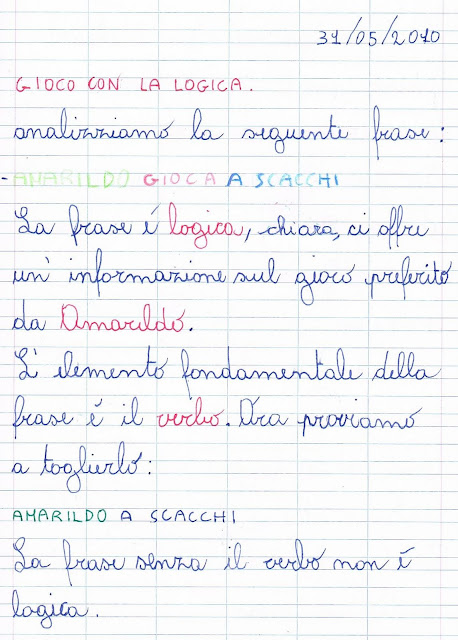 31/05/2010
GIOCO CON LA LOGICA.
analizziamo la seguente frase:
- AMARILDO GIOCA A SCACCHI
La frase é logica, chiara, ci offre
un' informazione sul gioco preferito
da Amarildo.
L' elemento fondamentale della
frase é il verbo. Ora proviamo
a toglierlo:
AMARILDO A SCACCHI
La frase senza il verbo non é
logica.